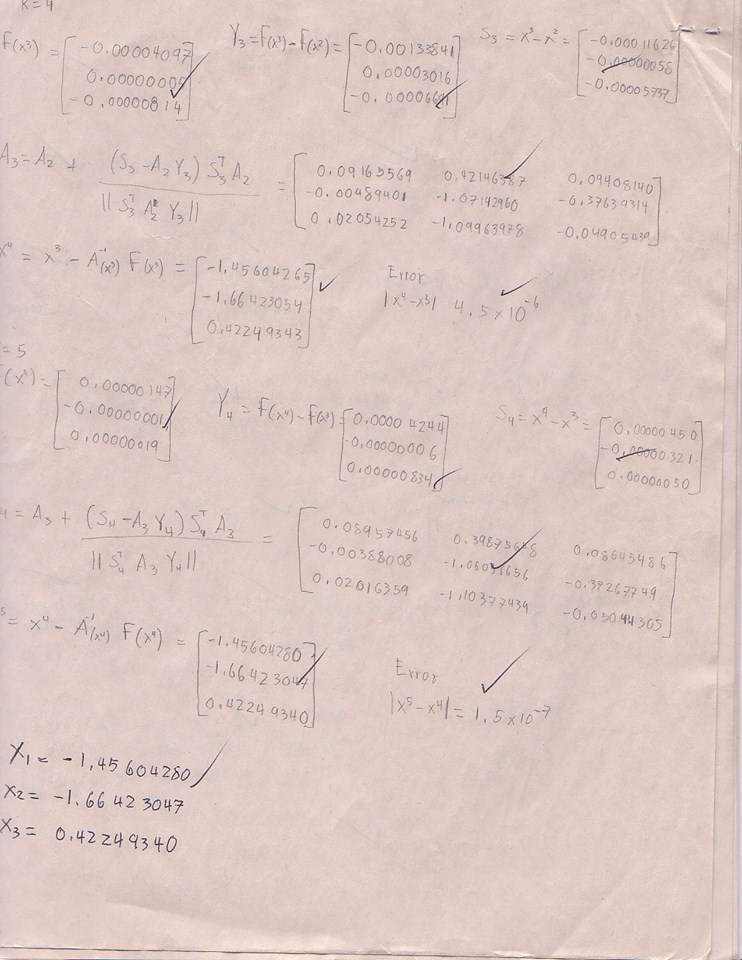 K=4
F(x³) = [-0.00004097 0.00000005 -0.00000814] Y₃=F(x³)-F(x²)= [-0.00133841 0.00003016 -0.00006641] S₃ = x³-x² = [-0.00011626 -0.00000058 -0.00005737]
A₃=A₂ + (S₃-A₂Y₃) S₃ᵀA₂ / ||S₃ᵀ A₂ Y₃|| = [0.09165569 0.42146387 0.09408140
-0.00489401 -1.07142960 -0.37639314
0.02054252 -1.09963978 -0.04905439]
x⁴ = x³ - A⁻¹(x³) F(x³) = [-1.45604265 -1.66423054 0.42249343] Error |x⁴-x³| 4.5x10⁻⁶
=5
(x⁴)= [0.00000147 -0.00000001 0.00000019] Y₄ = F(x⁴)-F(x³)= [0.00004244 -0.00000006 0.00000834] S₄=x⁴-x³= [0.00000450 -0.00000321 0.00000050]
= A₃ + (S₄-A₃Y₄)S₄ᵀA₃ / ||S₄ᵀ A₃ Y₄|| = [0.08957456 0.08645486
-0.00388008 -0.39267749
0.02016359 -1.10377439 -0.05044305]
= x⁴ - A⁻¹(x⁴) F(x⁴) = [-1.45604280 -1.66423047 0.42249340] Error |x⁵-x⁴|= 1.5x10⁻⁷
X₁= -1.45604280
X₂= -1.66423047
X₃= 0.42249340